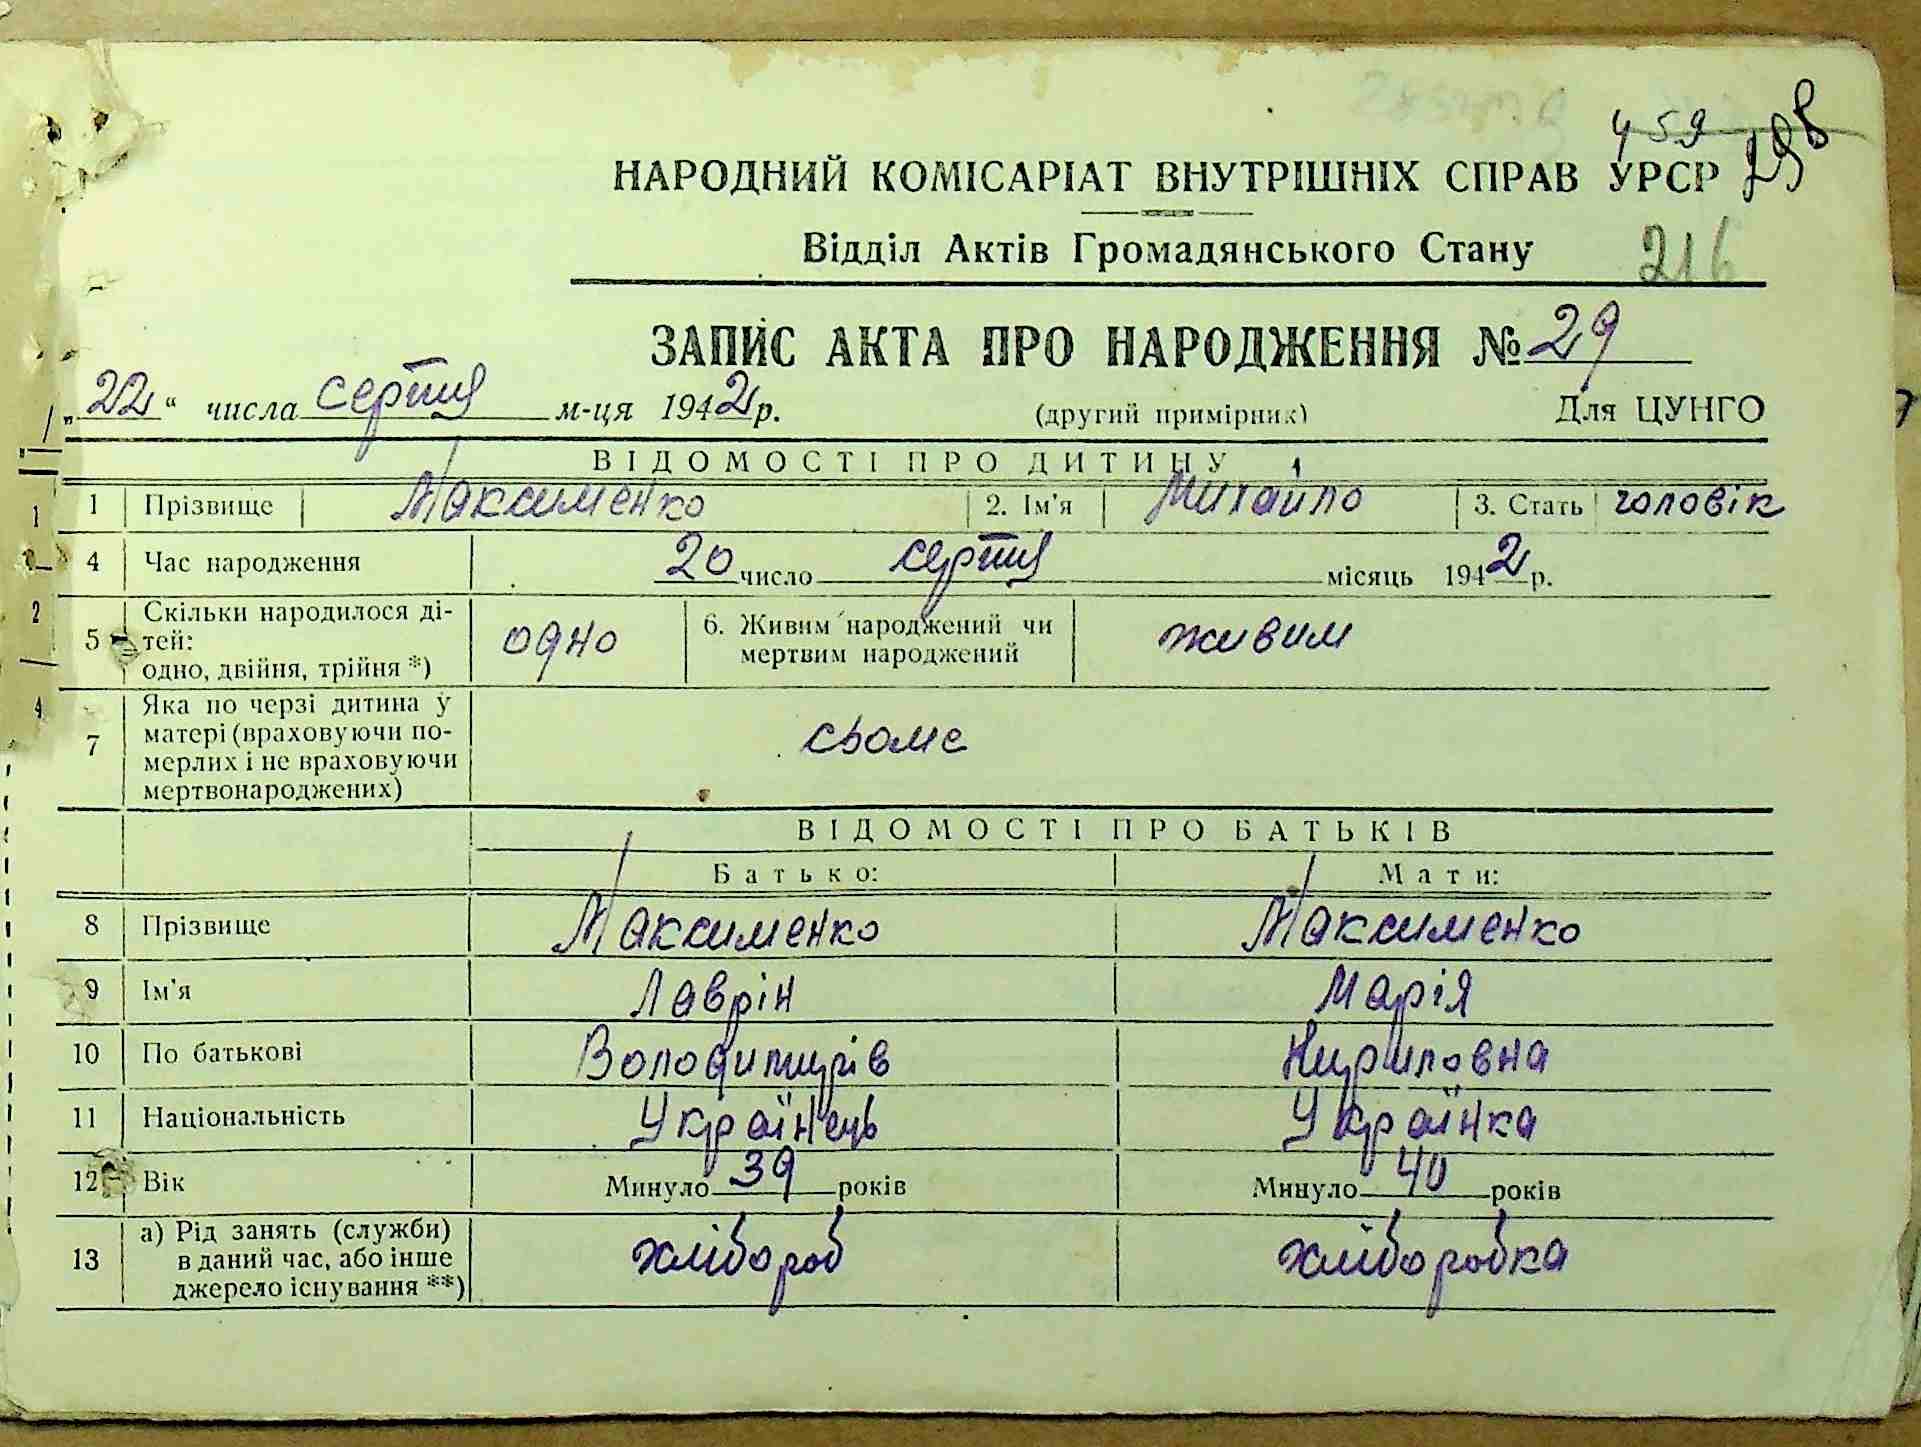 459 298
НАРОДНИЙ КОМІСАРІАТ ВНУТРІШНІХ СПРАВ УРСР
Відділ Актів Громадянського Стану 216
ЗАПИС АКТА ПРО НАРОДЖЕННЯ № 29
„22“ числа серпня м-ця 1942 р. (другий примірник) Для ЦУНГО
ВІДОМОСТІ ПРО ДИТИНУ
1 Прізвище Максименко 2. Ім'я Михайло 3. Стать чоловік
4 Час народження 20 число серпня місяць 1942 р.
5 Скільки народилося ді-
тей:
одно, двійня, трійня *) одно 6. Живим народжений чи
мертвим народжений живим
7 Яка по черзі дитина у
матері (враховуючи по-
мерлих і не враховуючи
мертвонароджених) сьоме
ВІДОМОСТІ ПРО БАТЬКІВ
Батько: Мати:
8 Прізвище Максименко Максименко
9 Ім'я Лаврін Марія
10 По батькові Володимирів Кириловна
11 Національність Українець Українка
12 Вік Минуло 39 років Минуло 40 років
13 а) Рід занять (служби)
в даний час, або інше
джерело існування **) хлібороб хлібороbка